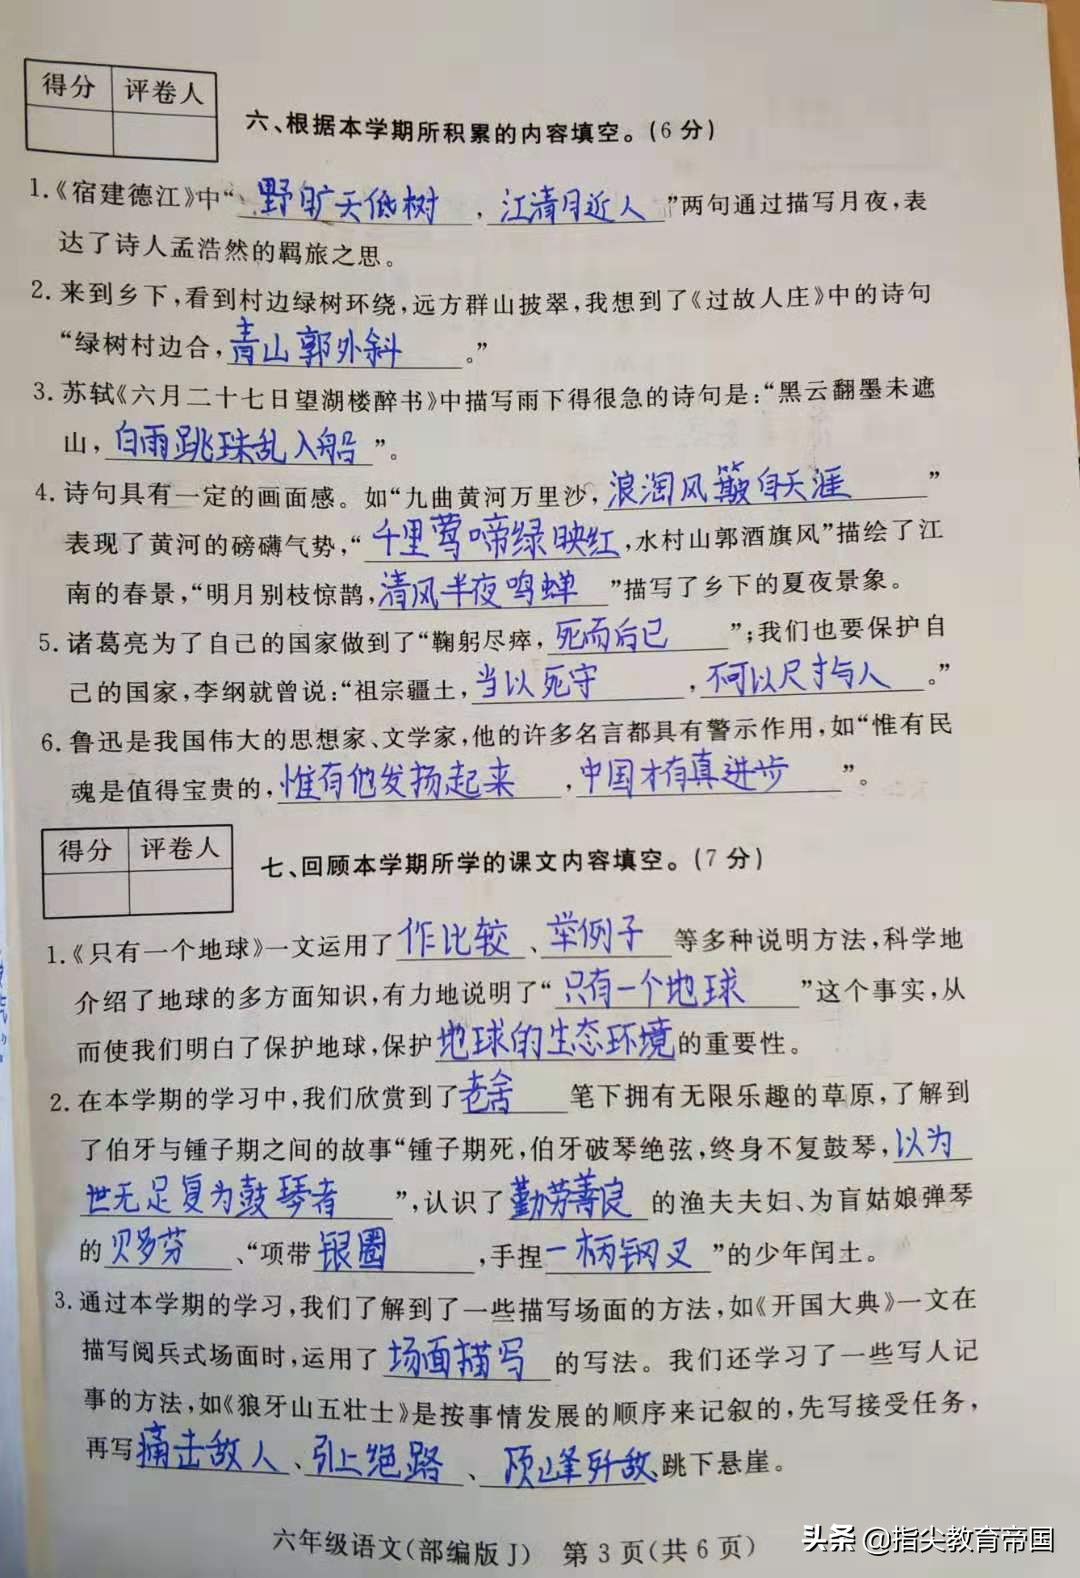 得分 评卷人
六、根据本学期所积累的内容填空。(6分)
1.《宿建德江》中“野旷天低树，江清月近人”两句通过描写月夜，表
达了诗人孟浩然的羁旅之思。
2.来到乡下，看到村边绿树环绕，远方群山披翠，我想到了《过故人庄》中的诗句
“绿树村边合，青山郭外斜。”
3.苏轼《六月二十七日望湖楼醉书》中描写雨下得很急的诗句是：“黑云翻墨未遮
山，白雨跳珠乱入船”。
4.诗句具有一定的画面感。如“九曲黄河万里沙，浪淘风簸自天涯”
表现了黄河的磅礴气势，“千里莺啼绿映红，水村山郭酒旗风”描绘了江
南的春景，“明月别枝惊鹊，清风半夜鸣蝉”描写了乡下的夏夜景象。
5.诸葛亮为了自己的国家做到了“鞠躬尽瘁，死而后已”；我们也要保护自
己的国家，李纲就曾说：“祖宗疆土，当以死守，不可以尺寸与人。”
6.鲁迅是我国伟大的思想家、文学家，他的许多名言都具有警示作用，如“惟有民
魂是值得宝贵的，惟有他发扬起来，中国才有真进步”。
得分 评卷人
七、回顾本学期所学的课文内容填空。(7分)
1.《只有一个地球》一文运用了作比较、举例子等多种说明方法，科学地
介绍了地球的多方面知识，有力地说明了“只有一个地球”这个事实，从
而使我们明白了保护地球，保护地球的生态环境的重要性。
2.在本学期的学习中，我们欣赏到了老舍笔下拥有无限乐趣的草原，了解到
了伯牙与锺子期之间的故事“锺子期死，伯牙破琴绝弦，终身不复鼓琴，以为
世无足复为鼓琴者”，认识了勤劳善良的渔夫夫妇、为盲姑娘弹琴
的贝多芬、“项带银圈，手捏一柄钢叉”的少年闰土。
3.通过本学期的学习，我们了解到了一些描写场面的方法，如《开国大典》一文在
描写阅兵式场面时，运用了场面描写的写法。我们还学习了一些写人记
事的方法，如《狼牙山五壮士》是按事情发展的顺序来记叙的，先写接受任务，
再写痛击敌人、引上绝路、顶峰歼敌、跳下悬崖。
六年级语文(部编版J) 第3页(共6页)
头条 @指尖教育帝国